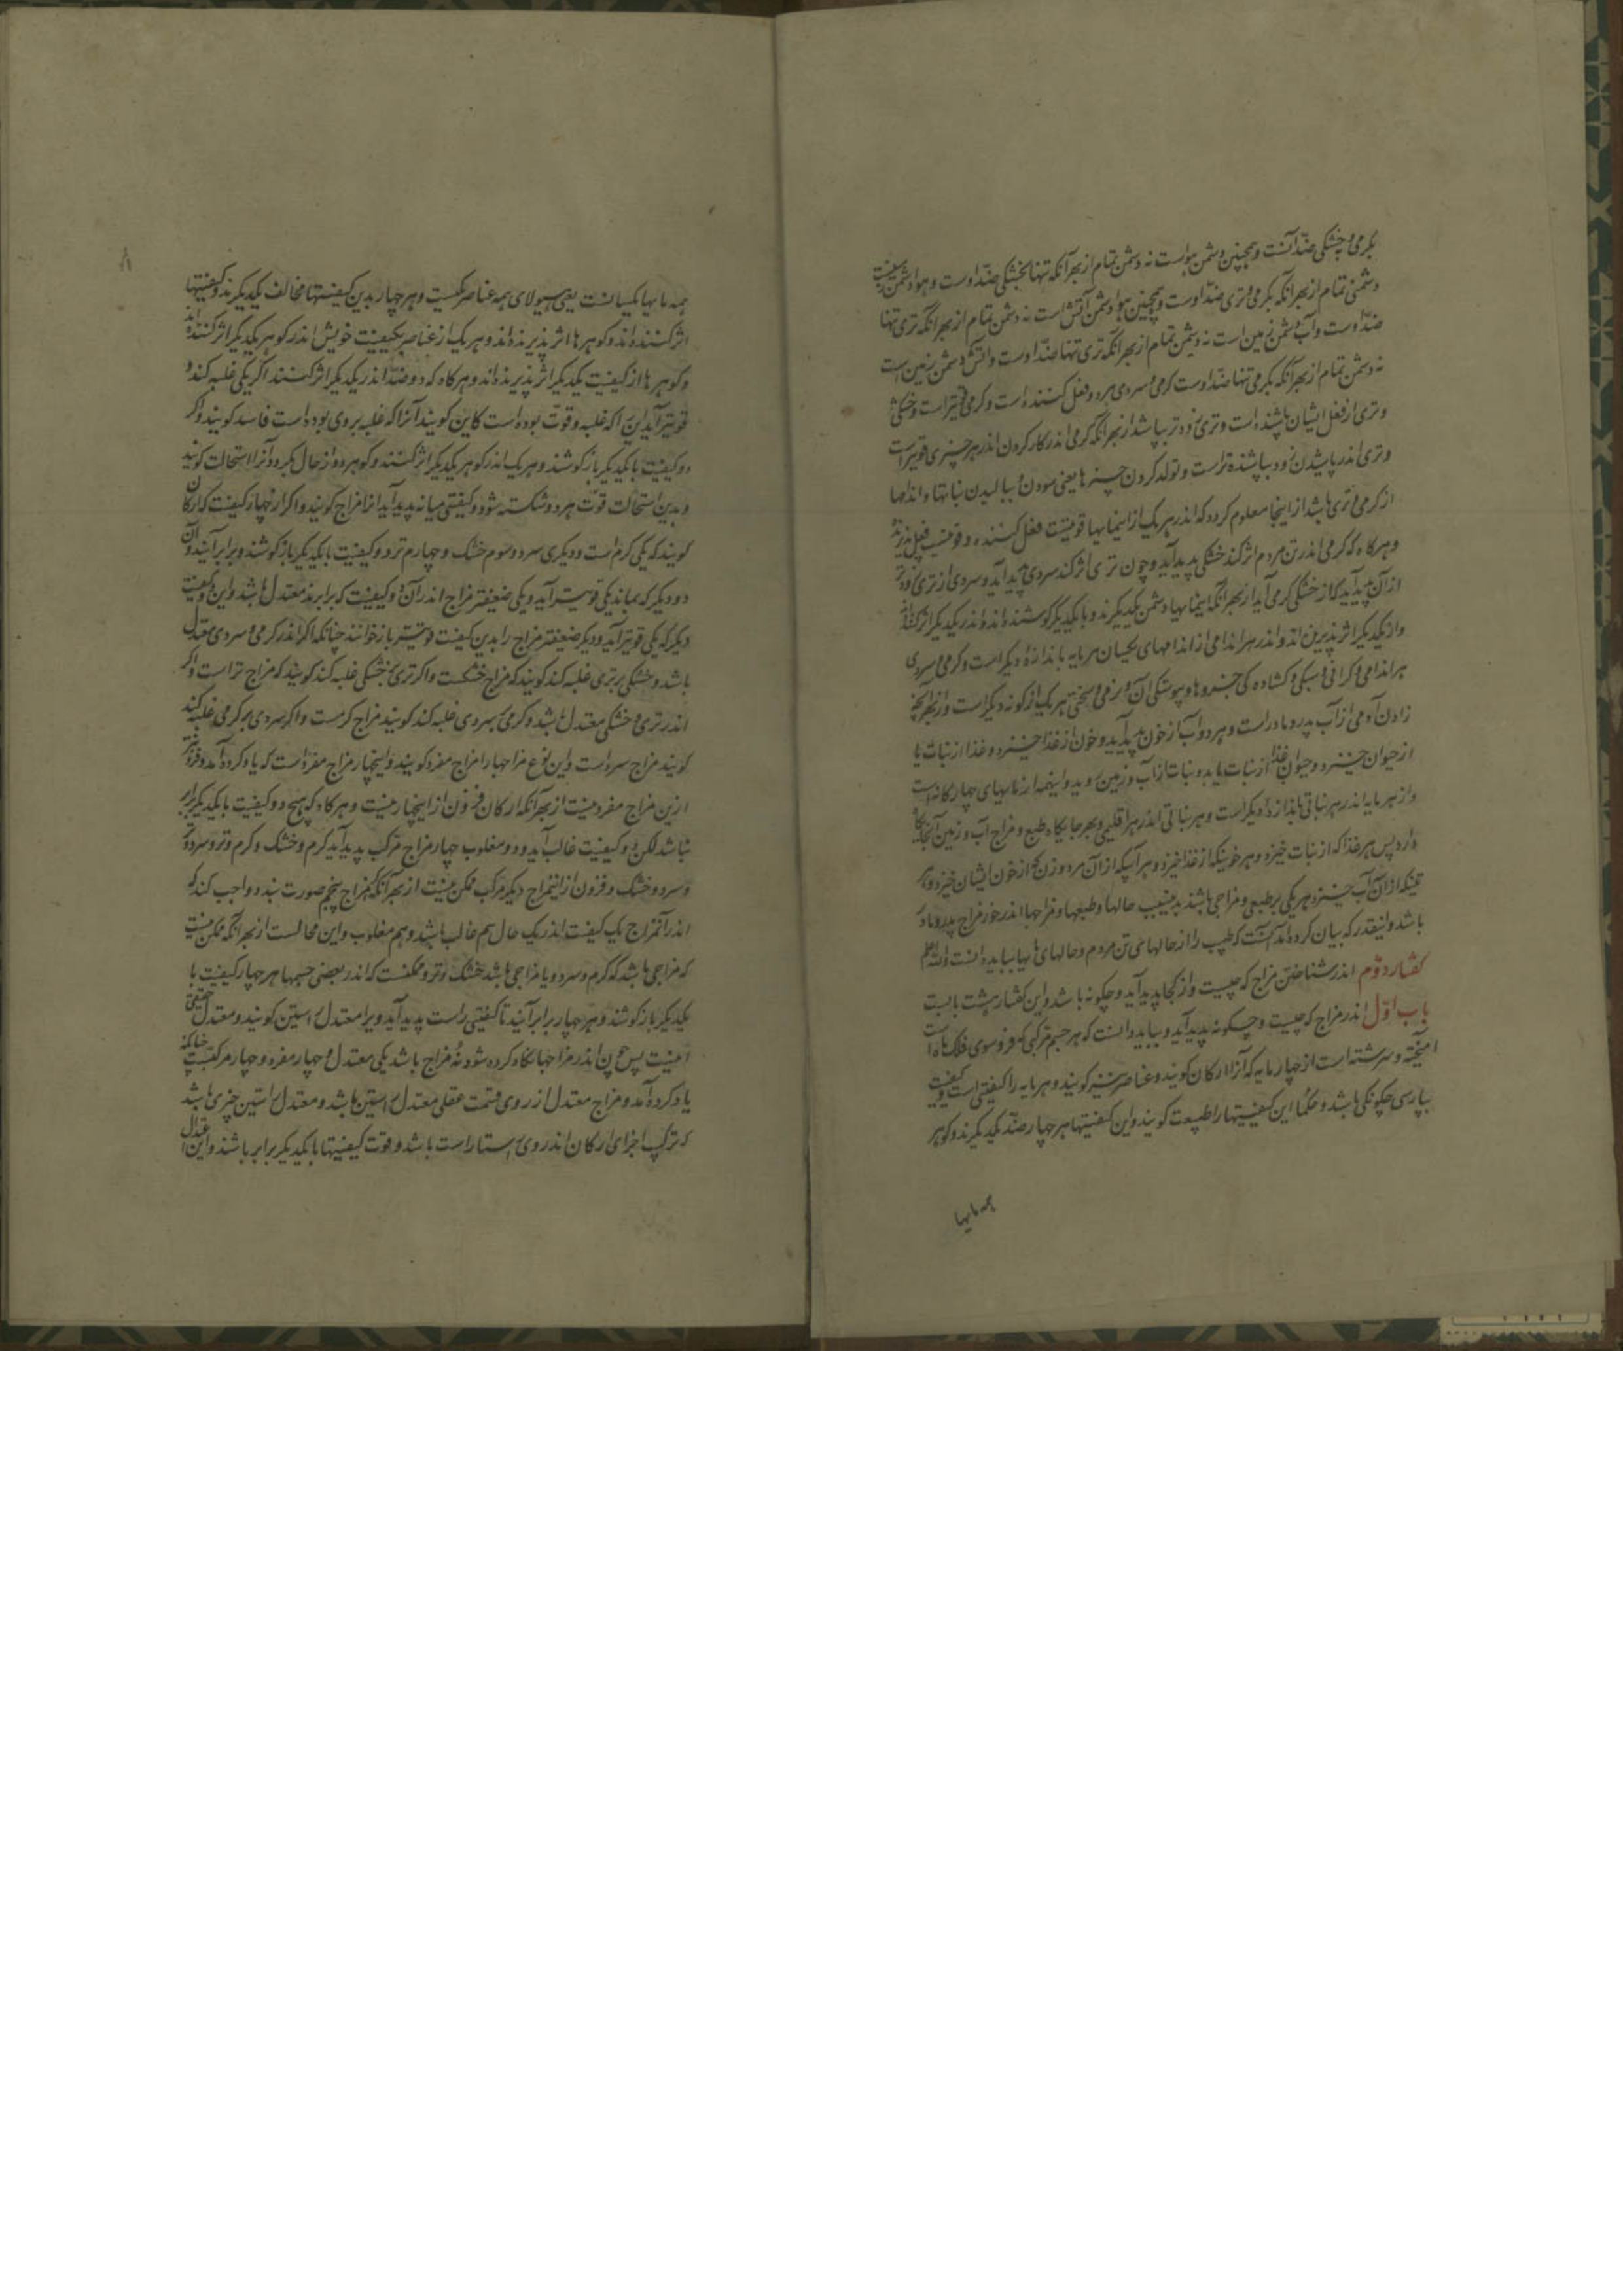 بگرمی و خشکی ضد آنست و همچنین دشمن هواست نه دشمن تمام از بهر آنکه تنها بخشکی ضد اوست و هوا دشمن
دشمنی تمام از بهر آنکه بگرمی و تری ضد اوست و همچنین هوا دشمن آتش است نه دشمن تمام از بهر آنکه تری تنها
ضد اوست و آب دشمن زمین است نه دشمن تمام از بهر آنکه تری تنها ضد اوست و آتش دشمن زمین است
نه دشمن تمام از بهر آنکه بگرمی تنها ضد اوست گرمی و سردی هر دو فعل کننده است و گرمی قویتر است و خشکی
و تری از فعل ایشان باشنده است و تری زودتر بپاشد از بهر آنکه گرمی اندر کار کردن اندر هر چیزی قویتر است
و تری اندر پاشیدن زود بپاشنده تر است و تولد کردن چیزها یعنی بودن و ببالیدن نباتها و اندامها
از گرمی و تری باشد از اینجا معلوم گردد که اندر هر یک از این مایها قوتیست فعل کننده و قوتیست فعل پذیرنده
و هرگاه که گرمی اندر تن مردم اثر کند خشکی پدید آید و چون تری اثر کند سردی پدید آید و سردی از تری و تری
از آن پدید آید که از خشکی گرمی آید از بهر آنکه این مایها دشمن یکدیگرند و با یکدیگر کوشنده اند و اندر یکدیگر اثر کننده اند
و از یکدیگر اثر پذیرند و اندر هر اندامی از اندامهای یکسان هر مایه باندازه دیگر است و گرمی و سردی
هر اندامی و گرانی و سبکی و گشادگی جزوها و پیوستگی آن و نرمی و سختی هر یک از گونه دیگر است و از بهر آنکه
زادن آدمی از آب پدر و مادر است و هر دو آب از خون پدید آید و خون از غذا خیزد و غذا از نبات یا
از حیوان خیزد و حیوان غذا از نبات یابد و نبات از آب و زمین روید و اینهمه از مایهای چهارگانه است
و از هر مایه اندر هر نباتی باندازه دیگر است و هر نباتی اندر هر اقلیمی و بهر جایگاه طبع و مزاج آب و زمین آنجایگاه
دارد پس هر غذا که از نبات خیزد و هر خونیکه از غذا خیزد و هر آبیکه از آن مرد و زن که از خون ایشان خیزد و هر
تنیکه از آن آب خیزد هر یکی بر طبعی و مزاجی باشند بدین سبب حالها و طبعها و مزاجها اندر خور مزاج پدر و مادر
باشد و اینقدر که بیان کرده آمد آنست که طبیب را از حالهای تن مردم و حالهای مایها بباید دانست والله اعلم
گفتار دوم اندر شناختن مزاج که چیست و از کجا پدید آید و چگونه باشد و این گفتار هشت بابست
باب اول اندر مزاج که چیست و چگونه پدید آید و بباید دانست که هر جسم مرکبی که فروسوی فلک ماه است
آمیخته و سرشته است از چهار مایه که آنرا ارکان گویند و عناصر نیز گویند و هر مایه را کیفیتی است و کیفیت
بپارسی چگونگی باشد و حکما این کیفیتها را طبیعت گویند و این کیفیتها هر چهار ضد یکدیگرند و گوهر
همه مایها
همه مایها یکسانست یعنی هیولای همه عناصر یکیست و هر چهار بدین کیفیتها مخالف یکدیگرند و کیفیتها
اثر کننده اند و گوهرها اثر پذیرنده اند و هر یک از عناصر بکیفیت خویش اندر گوهر یکدیگر اثر کننده اند
و گوهرها از کیفیت یکدیگر اثر پذیرنده اند و هرگاه که دو ضد اندر یکدیگر اثر کنند اگر یکی غلبه کند و
قویتر آید این را که غلبه و قوت بوده است کاین گویند آنرا که غلبه بر وی بوده است فاسد گویند و اگر
دو کیفیت با یکدیگر باز کوشند و هر یک اندر گوهر یکدیگر اثر کنند و گوهر هر دو از حال بگردد آنرا استحالت گویند
و بدین استحالت قوت هر دو شکسته شود و کیفیتی میانه پدید آید آنرا مزاج گویند و اگر از چهار کیفیت که ارکان
گویند که یکی گرم است و دیگری سرد و سوم خشک و چهارم تر دو کیفیت با یکدیگر باز کوشند و برابر آیند و آن
دو دیگر که بماند یکی قویتر آید و یکی ضعیفتر مزاج اندر آن دو کیفیت که برابرند معتدل باشد و این دو کیفیت
دیگر که یکی قویتر آید و دیگر ضعیفتر مزاج را بدین کیفیت قویتر باز خوانند چنانکه اگر اندر گرمی و سردی معتدل
باشد و خشکی بر تری غلبه کند گویند که مزاج خشکست و اگر تری بر خشکی غلبه کند گویند که مزاج تر است و اگر
اندر تری و خشکی معتدل باشد و گرمی بر سردی غلبه کند گویند مزاج گرمست و اگر سردی بر گرمی غلبه کند
گویند مزاج سرد است و این نوع مزاجها را مزاج مفرد گویند و این چهار مزاج مفرد است که یاد کرده آمد و فزونتر
ازین مزاج مفرد نیست از بهر آنکه ارکان فزون از این چهار نیست و هرگاه که هیچ دو کیفیت با یکدیگر برابر
نباشد لکن دو کیفیت غالب آید و دو مغلوب چهار مزاج مرکب پدید آید گرم و خشک و گرم و تر و سرد و تر
و سرد و خشک و فزون از این مزاج دیگر مرکب ممکن نیست از بهر آنکه مزاج پنجم صورت نبندد و واجب کند که
اندر آن مزاج یک کیفیت اندر یک حال هم غالب باشد و هم مغلوب و این محالست از بهر آنکه ممکن نیست
که مزاجی باشد که گرم و سرد و یا مزاجی باشد خشک و تر و ممکنست که اندر بعضی جسمها هر چهار کیفیت با
یکدیگر باز کوشند و هر چهار برابر آیند تا کیفیتی راست پدید آید و ویرا معتدل راستین گویند و معتدل حقیقی
اینست پس چون اندر مزاجها نگاه کرده شود نه مزاج باشد یکی معتدل و چهار مفرد و چهار مرکب چنانکه
یاد کرده آمد و مزاج معتدل از روی قسمت عقلی معتدل راستین باشد و معتدل راستین چیزی باشد
که ترکیب اجزای ارکان اندر وی راستاراست باشد و قوت کیفیتها با یکدیگر برابر باشند و این اعتدال